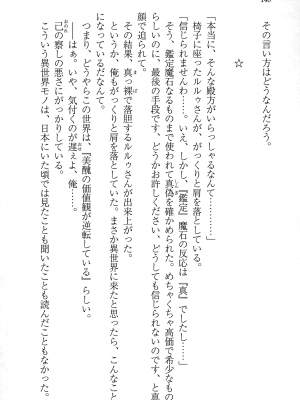 その言い方はどうなんだろう。
☆
「本当に、そんな殿方がいらっしゃるなんて……」
椅子に座ったルルゥさんが、がっくりと肩を落としている。
「信じられませんわ……。いえ、『鑑定』魔石の反応は『真』でしたし……」
そう、鑑定魔石なるものまで使われて真偽を確かめられた。めちゃくちゃ高価で希少なもの
らしいのに、最後の手段です、どうかお許しください、どうしても信じられないのです、と真
顔で迫られて。
その結果、真っ裸で落胆するルルゥさんが出来上がった。
というか、俺もがっくりと肩を落としていた。まさか異世界に来たと思ったら、こんなこと
になっていたなんて。
つまり、どうやらこの世界は、『美醜の価値観が逆転している』らしい。
――はぁ。いや、気付くのが遅えよ、俺……。
己の察しの悪さにがっかりしている。
こういう異世界モノは、日本にいた頃では見たことも聞いたことも読んだこともなかった。